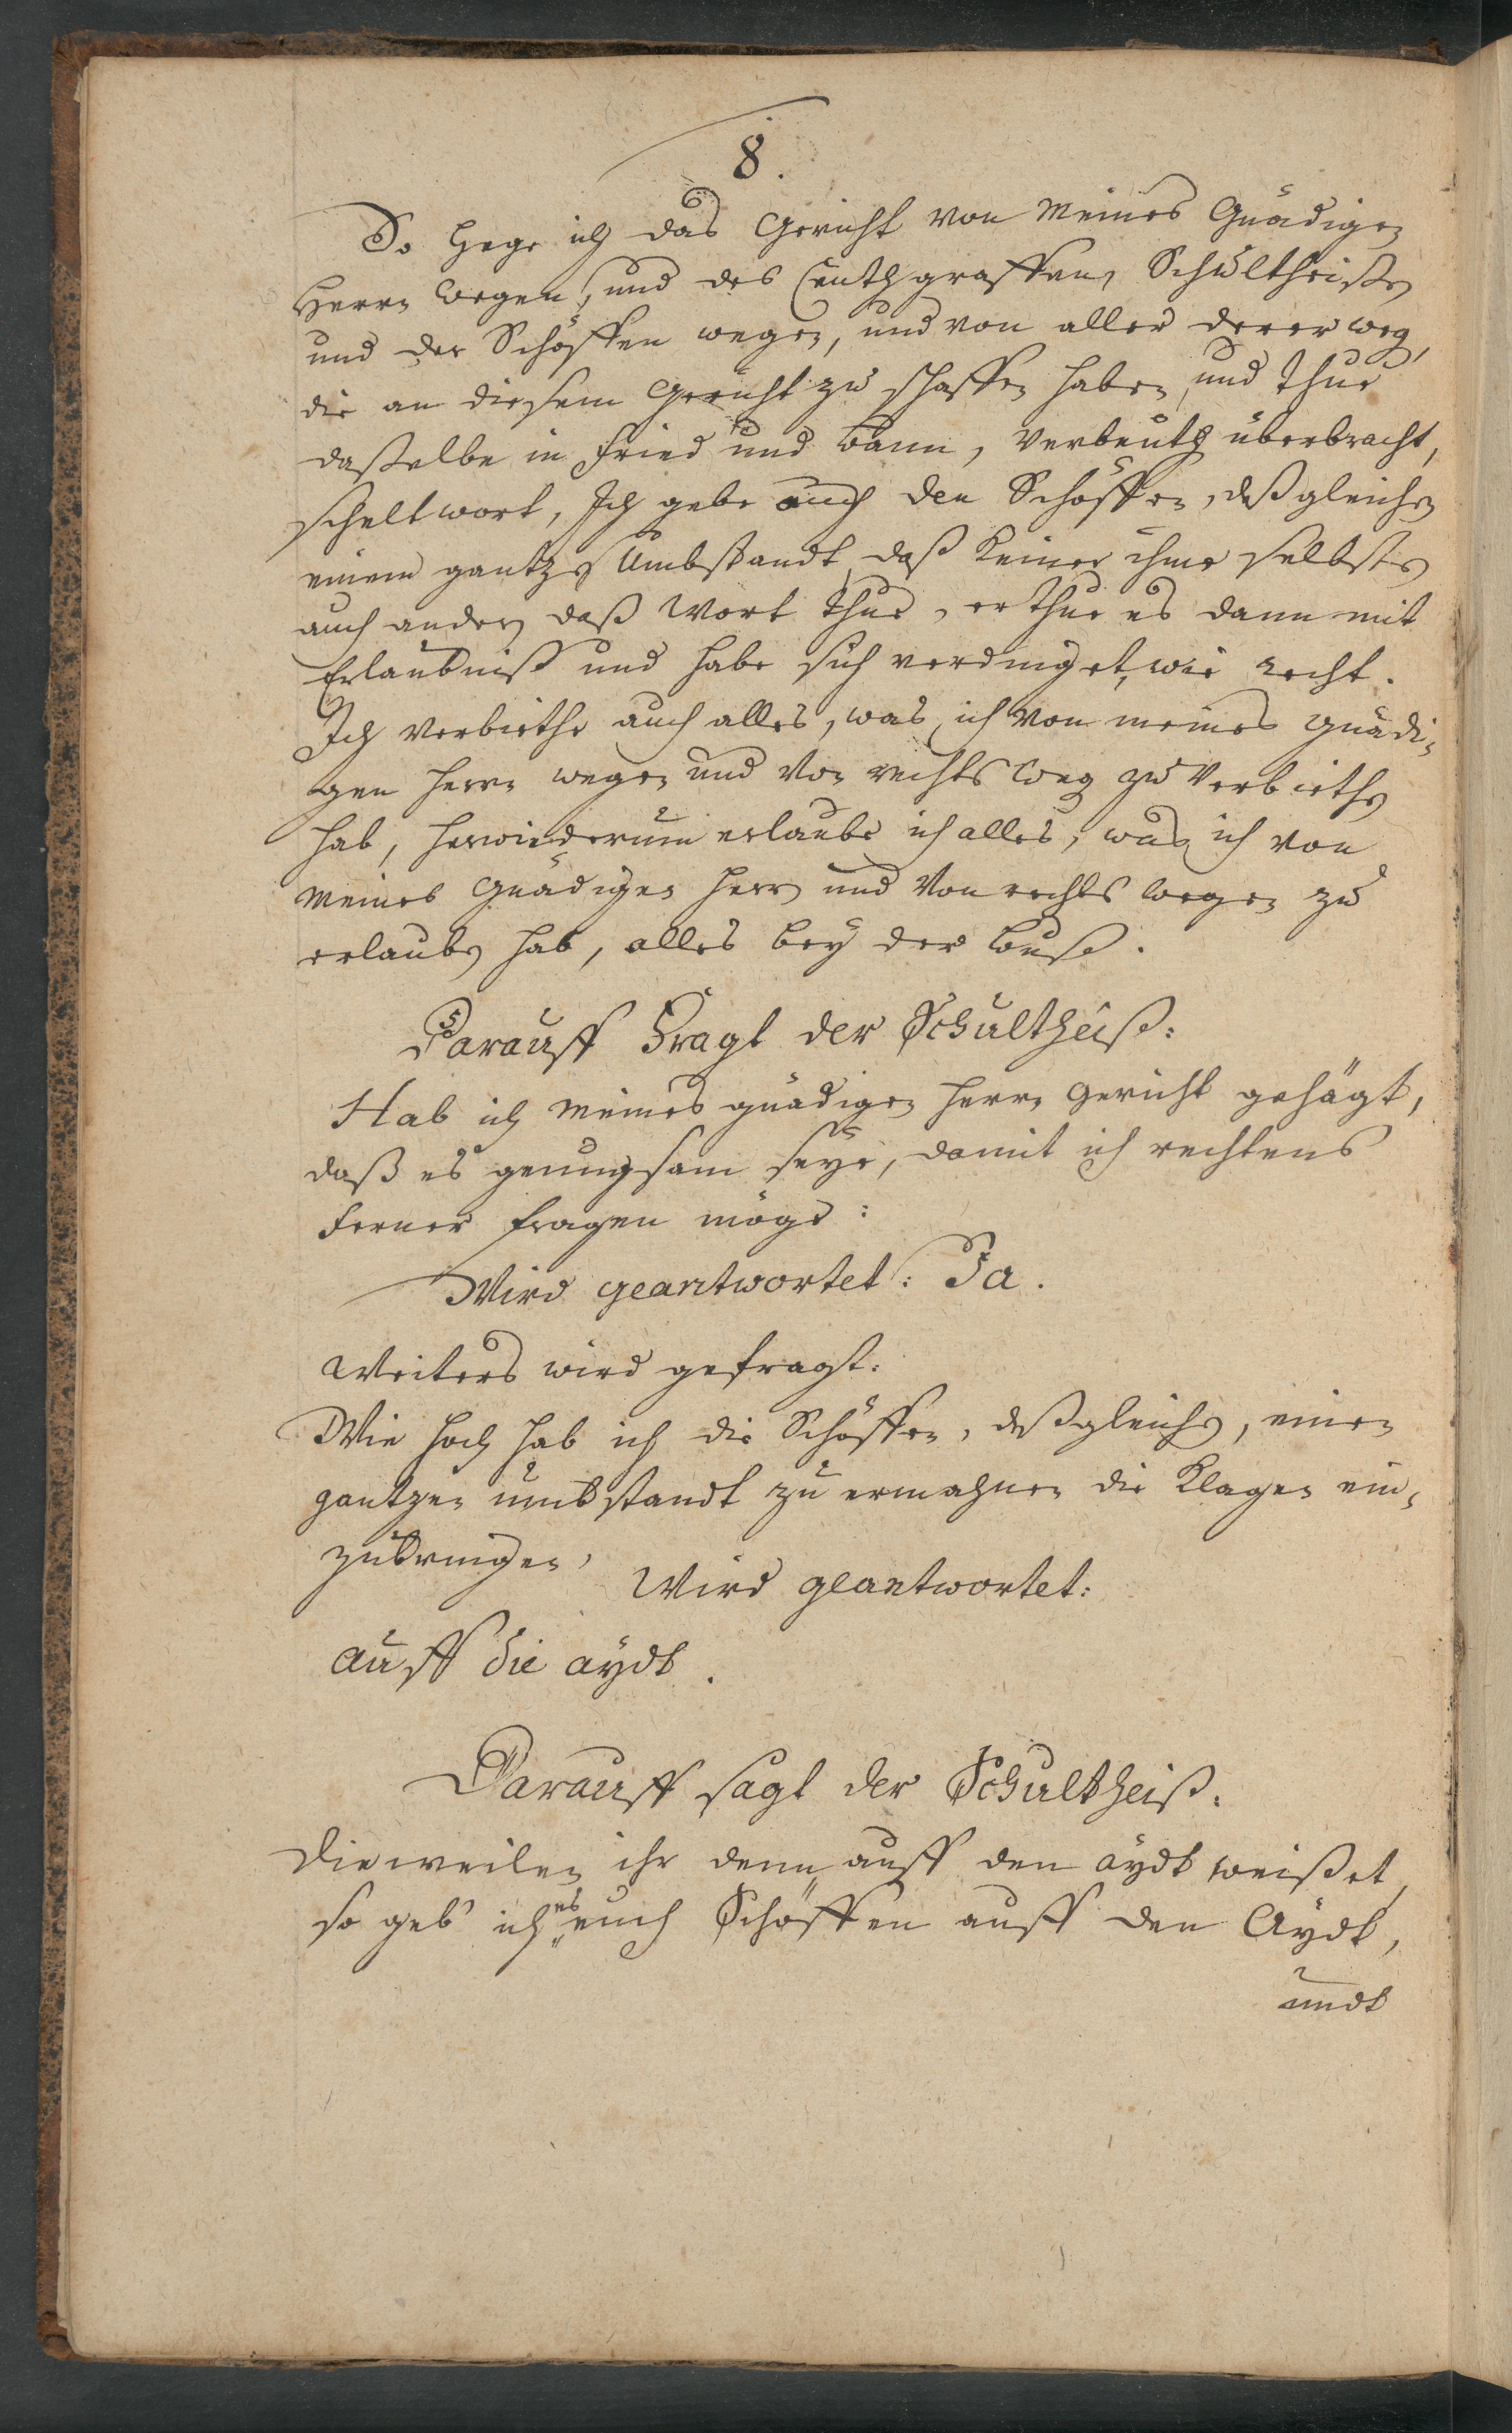 8.
So hege ich das Gericht von meines Gnädigen
Herrn wegen, und des Centhgraffen, Schultheißen
und der Schöffen wegen, und von aller derer weg,
die an diesem Gericht zu schaffen haben, und thue
daßelbe in fried und bann, verbeuth überbracht,
scheltwort, Ich gebe auch den Schöffen, deßgleichen
einem gantzen Umbstandt, daß keiner ihme selbsten
auch andern daß wort thue, er thue es dann mit
Erlaubniß und habe sich verdinget, wie recht.
Ich verbiethe auch alles, was ich von meines gnädi-
gen herrn wegen und von rechts weg zu verbiethen
hab, herwiederumb erlaube ich alles, was ich von
meines Gnädigen herrn und von rechts wegen zu
erlauben hab, alles bey der buß.
Darauff Fragt der Schultheiß:
Hab ich meines gnädigen herrn gericht gehägt,
daß es genungsam seye, damit ich rechtens
ferner fragen möge:
Wird geantwortet: Ja.
Weiters wird gefragt:
Wie hoch hab ich die Schöffen, deßgleichen, einen
gantzen umbstandt zu ermahnen die Klagen ein-
zubringen,
Wird geantwortet:
auff die aydt.
Darauff sagt der Schultheiß:
Dieweilen ihr denn auff den aydt weißet,
so geb ich es euch Schöffen auff den Aydt,
undt